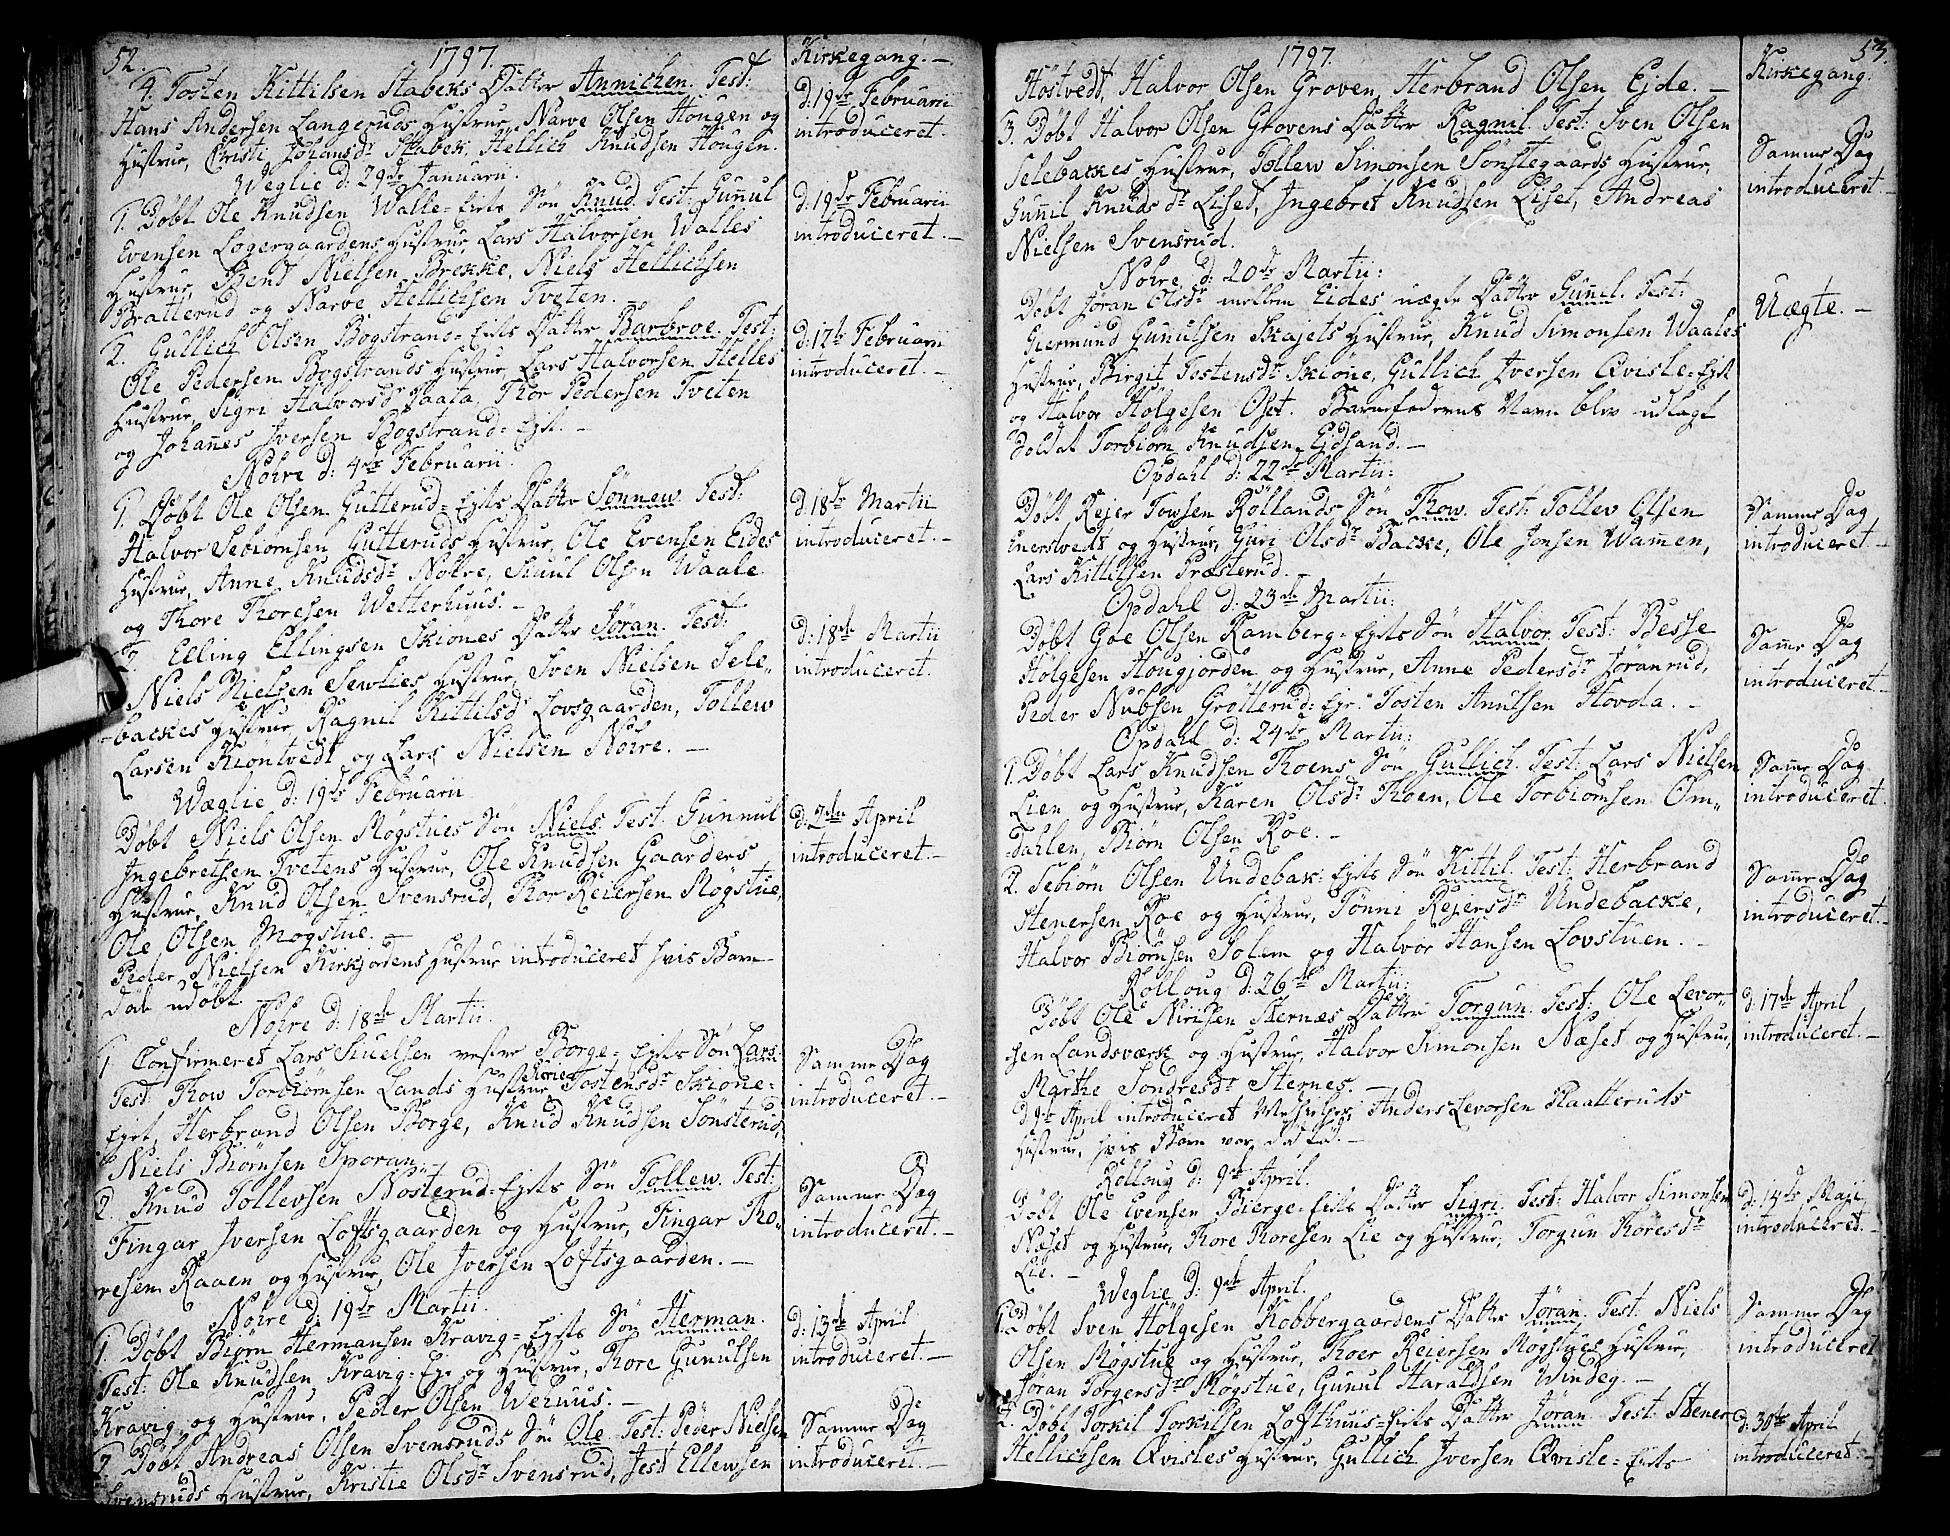 52. 1797. Kirkegang. —
4. Tosten Kittilsen Stabeks Datter Annichen. Test:
Hans Andersen Langeruds Hustrue, Narve Olsen Hougen og
Hustrue, Christi Johansdr Stabek, Hellich Knudsen Hougen.
d: 19de Februarii
introduceret.
Weglie d: 29de Januarii.
1. Døbt Ole Knudsen Walle-Eiets Søn Knud. Test: Gunnul
Evensen Logergaardens Hustrue, Lars Halvorsen Walles
Hustrue, Bent Nielsen Brekke, Niels Hellichsen
Bratterud og Narve Hellichsen Tveten. —
d: 19de Februarii
introduceret. —
2. Gullich Olsen Bogstrand-Eiets Datter Barbroe. Test:
Ole Pedersen Bogstrands Hustrue, Lars Halvorsen Helles
Hustrue, Sigri Halvorsdr Paata, Thor Pedersen Tveten
og Johannes Iversen Bogstrand-Eiet. —
d: 12te Februarii
introduceret. —
Nohre d: 4de Februarii.
1. Døbt Ole Olsen Gutterud-Eiets Datter Sønnew. Test:
Halvor Sebiørnsen Gutteruds Hustrue, Ole Evensen Eides
Hustrue, Anne Knudsdr Nohre, Siuul Olsen Waale
og Thore Thoresen Wetterhuus. —
d: 18de Martii
introduceret. —
2. Elling Ellingsen Skiønes Datter Jøran. Test:
Niels Nielsen Sewlies Hustrue, Sven Nielsen Sele-
backes Hustrue, Ragnil Kittilsdr Lovsgaarden, Tollew
Larsen Kiøntvedt og Lars Nielsen Nohre. —
d: 18de Martii
introduceret.
Wæglie d: 19de Februarii
Døbt Niels Olsen Møgstues Søn Niels. Test. Gunnul
Ingebretsen Tvetens Hustrue, Ole Knudsen Gaarders
Hustrue, Knud Olsen Svensrud, Thor Reiersen Møgstue,
Ole Olsen Møgstue.
d: 9de April
introduceret. —
Peder Nielsen Kirkjordens Hustrue introduceret hvis Barn
døde udøbt
Nohre d: 18de Martii.
1 Confirmeret Lars Siuelsen nestre Borge-Eiets Søn Lars.
Test: Thow Torbiørnsen Lands Hustrue, Tostensdr Skiøne-
Eiet, Herbrand Olsen Borge, Knud Knudsen Sønsterud,
Niels Biørnsen Sporan.
Samme Dag
introduceret. —
2. Knud Tollevsen Nøsterud-Eiets Søn Tollew. Test:
Fingar Iversen Loftsgaarden og Hustrue, Fingar Tho-
resen Raaen og Hustrue, Ole Iversen Loftsgaarden. —
Samme Dag
introduceret. —
Nohre d: 19de Martii.
1. Døbt Biørn Hermansen Kravig-Eiets Søn Herman.
Test: Ole Knudsen Kravig-Eje og Hustrue, Thore Gunulsen
Kravig og Hustrue, Peder Olsen Wehuus. —
d: 13de April
introduceret. —
2. Døbt Andreas Olsen Svensruds Søn Ole. Test: Peder Nielsen
Svensruds Hustrue, Kristie Olsdr Svensrud, Jest Ellewsen
Samme Dag
introduceret. —
1797. Kirkegang. 53.
Høstvedt, Halvor Olsen Groven, Herbrand Olsen Eide. —
3. Døbt Halvor Olsen Grovens Datter Ragnil. Test: Sven Olsen
Selebackes Hustrue, Tollew Simonsen Sønstegaards Hustrue,
Gunnil Knudsdr Liset, Ingebret Knudsen Liset, Andreas
Nielsen Svensrud.
Samme Dag
introduceret. —
Nohre d: 20de Martii:
Døbt Jøran Olsdr mellem Eides uægte Datter Gunnil. Test:
Giermund Gunulsen Skajets Hustrue, Knud Simonsen Waales
Hustrue, Birgit Testensdr Skiøne, Gullich Iversen Qvisle-Eiet
og Halvor Holgesen Oset. Barnefaderens Navn blev udlagt
Soldat Torbiørn Knudsen Eidsand. —
Uægte. —
Opdahl d: 22de Martii:
Døbt Rejer Towsen Røllands Søn Thow. Test: Tollev Olsen
Enerstvedt og Hustrue, Guri Olsdr Backe, Ole Jonsen Wamen,
Lars Kittilsen Præsterud.
Samme Dag
introduceret. —
Opdahl d: 23de Martii:
Døbt Goe Olsen Ramberg-Eiets Søn Halvor. Test: Besse
Holgesen Hougjorden og Hustrue, Anne Pedersdr Jøranrud,
Peder Nubsen Grøtterud-Eje. Tosten Anulsen Hovda. —
Samme Dag
introduceret. —
Opdahl d: 24de Martii:
1. Døbt Lars Knudsen Thoens Søn Gullich. Test: Lars Nielsen
Lien og Hustrue, Karen Olsdr Thoen, Ole Torbiørnsen Om-
dahlen, Biørn Olsen Roe. —
Samme Dag
introduceret.
2. Sebiørn Olsen Undebak-Eiets Søn Kittil. Test: Herbrand
Stenersen Roe og Hustrue, Tønni Rejersdr Undebacke,
Halvor Biørnsen Solem og Halvor Hansen Lovstuen. —
Samme Dag
introduceret. —
Rolloug d: 26de Martii:
Døbt Ole Nirisen Sternæs Datter Torgun. Test: Ole Levor-
sen Landsværk og Hustrue, Halvor Simonsen Næset og Hustrue,
Marthe Sondresdr Sternes. —
d: 17de April
introduceret. —
d: 9de April introduceret Anders Levorsen Plaatteruds
Hustrue, hvis Barn var død fød. —
Rolloug d: 9de April.
Døbt Ole Evensen Bierge-Eiets Datter Sigri. Test: Halvor Simonsen
Næset og Hustrue, Thore Thoresen Lie og Hustrue, Torgun Thoresdr
Lie. —
d: 14de Maji
introduceret. —
Weglie d: 9de April.
1. Døbt Sven Holgesen Kobbergaardens Datter Jøran. Test: Niels
Olsen Møgstue og Hustrue, Thoer Reiersen Møgstues Hustrue,
Jøran Torgersdr Møgstue, Gunul Haraldsen Windeg. —
Samme Dag
introduceret
2. Døbt Torkil Torkilsen Lofthuus-Eiets Datter Jøran. Test: Stener
Hellichsen Qvisles Hustrue, Gullich Iversen Qvisle-Eiets
d: 30te April
introduceret. —